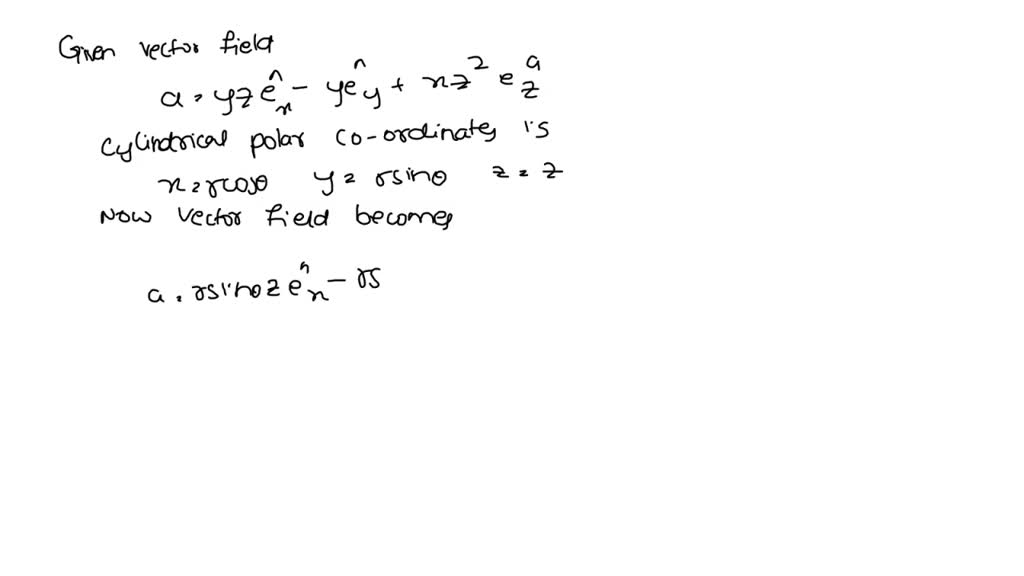 Given vector field
a = yz ê_x - yê_y + xz² ê_z
cylindrical polar co-ordinates is
x = rcosθ y = rsinθ z = z
Now vector field becomes
a = rsinθ z ê_x - rs